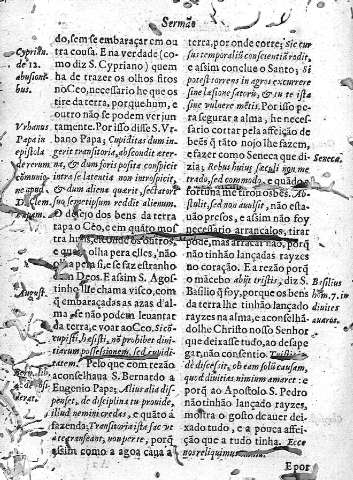 Sermão
do, sem se embaraçar em ou
tra cousa. E na verdade (co-
mo diz S. Cypriano) quem
ha de trazer os olhos fitos
no Ceo, necessario he que os
tire da terra, porque hum, e
outro não se podem ver jun
tamente. Por isso disse S. Vr-
bano Papa; Cupiditas dum in-
gerit transitoria, abscondit æter-
na, & dum foris posita conspicit
intra se latentia non introspicit,
& dum aliena quærit, sectator
suo semetipsum reddit alienum.
O dejo dos bens da terra
tapa o Ceo, e em quãto mos
tra huns, esconde os outros,
e que olha pera elles, não
olha pera si, e se faz estranho
a Deos. E assim S. Agos-
tinho lhe chama visco, com
q̃ embaraçadas as azas d'al-
ma, se não podem leuantar
da terra, e voar ao Ceo.
possessionem, sed cupidi-
tatem. Pelo que com rezão
aconselhaua S. Bernardo a
Eugenio Papa; Aliua alia dis-
penset, de disciplina tu prouide,
illud nemini credas, e quãto á
fazenda; Transitoria ista sac ve
a transeant, non per te, porq̃
assim como a agoa cauã a
Cyprian.
de 12.
abusioni-
bus.
Vrbanus
Papa in
epistola
August.
terra, por onde corre; sic cur
sus temporalium conscientiã radit.
e assim conclue o Santo; Si
potest torrens in agros excurrere
sine læsione satorũ, & tu te ista
sine vulnere mẽtis. Por isso pe-
ra segurar a alma, he neces-
sario cortar pela affeição de
beẽs q̃ tãto nojo lhe fazem,
e fazer como Seneca que di-
zia; Rebus huius sæculi non me
trado, sed commodo, e quãdo a
fortuna me tirou os bẽs. Ab-
stulit, sed non auulsit, não esta-
uão presos, e assim não foy
necessario arrancalos, tirar
pode, mas arracar não, porq̃
não tinhão lançadas rayzes
no coração. E a rezão porq̃
o macebo abijt tristis, diz S.
Basilio q̃ foy, porque os bens
da terra lhe tinhão lançado
rayzes na alma, e aconselhã-
dolhe Christo nosso Senhor
que deixasse tudo, ao desape
gar, não consentio. Tristis in-
de discessit, ob eam solũ causam,
quod diuitias nimium amaret: e
porq̃ ao Apostolo S. Pedro
não tinhão lançado rayzes,
mostra o gosto de auer deixa-
do tudo, e a pouca affei-
ção que a tudo tinha. Ecce
nos reliquimus omnia.
Seneca.
Basilius
hom. 7. in
diuites
auaros.
E por